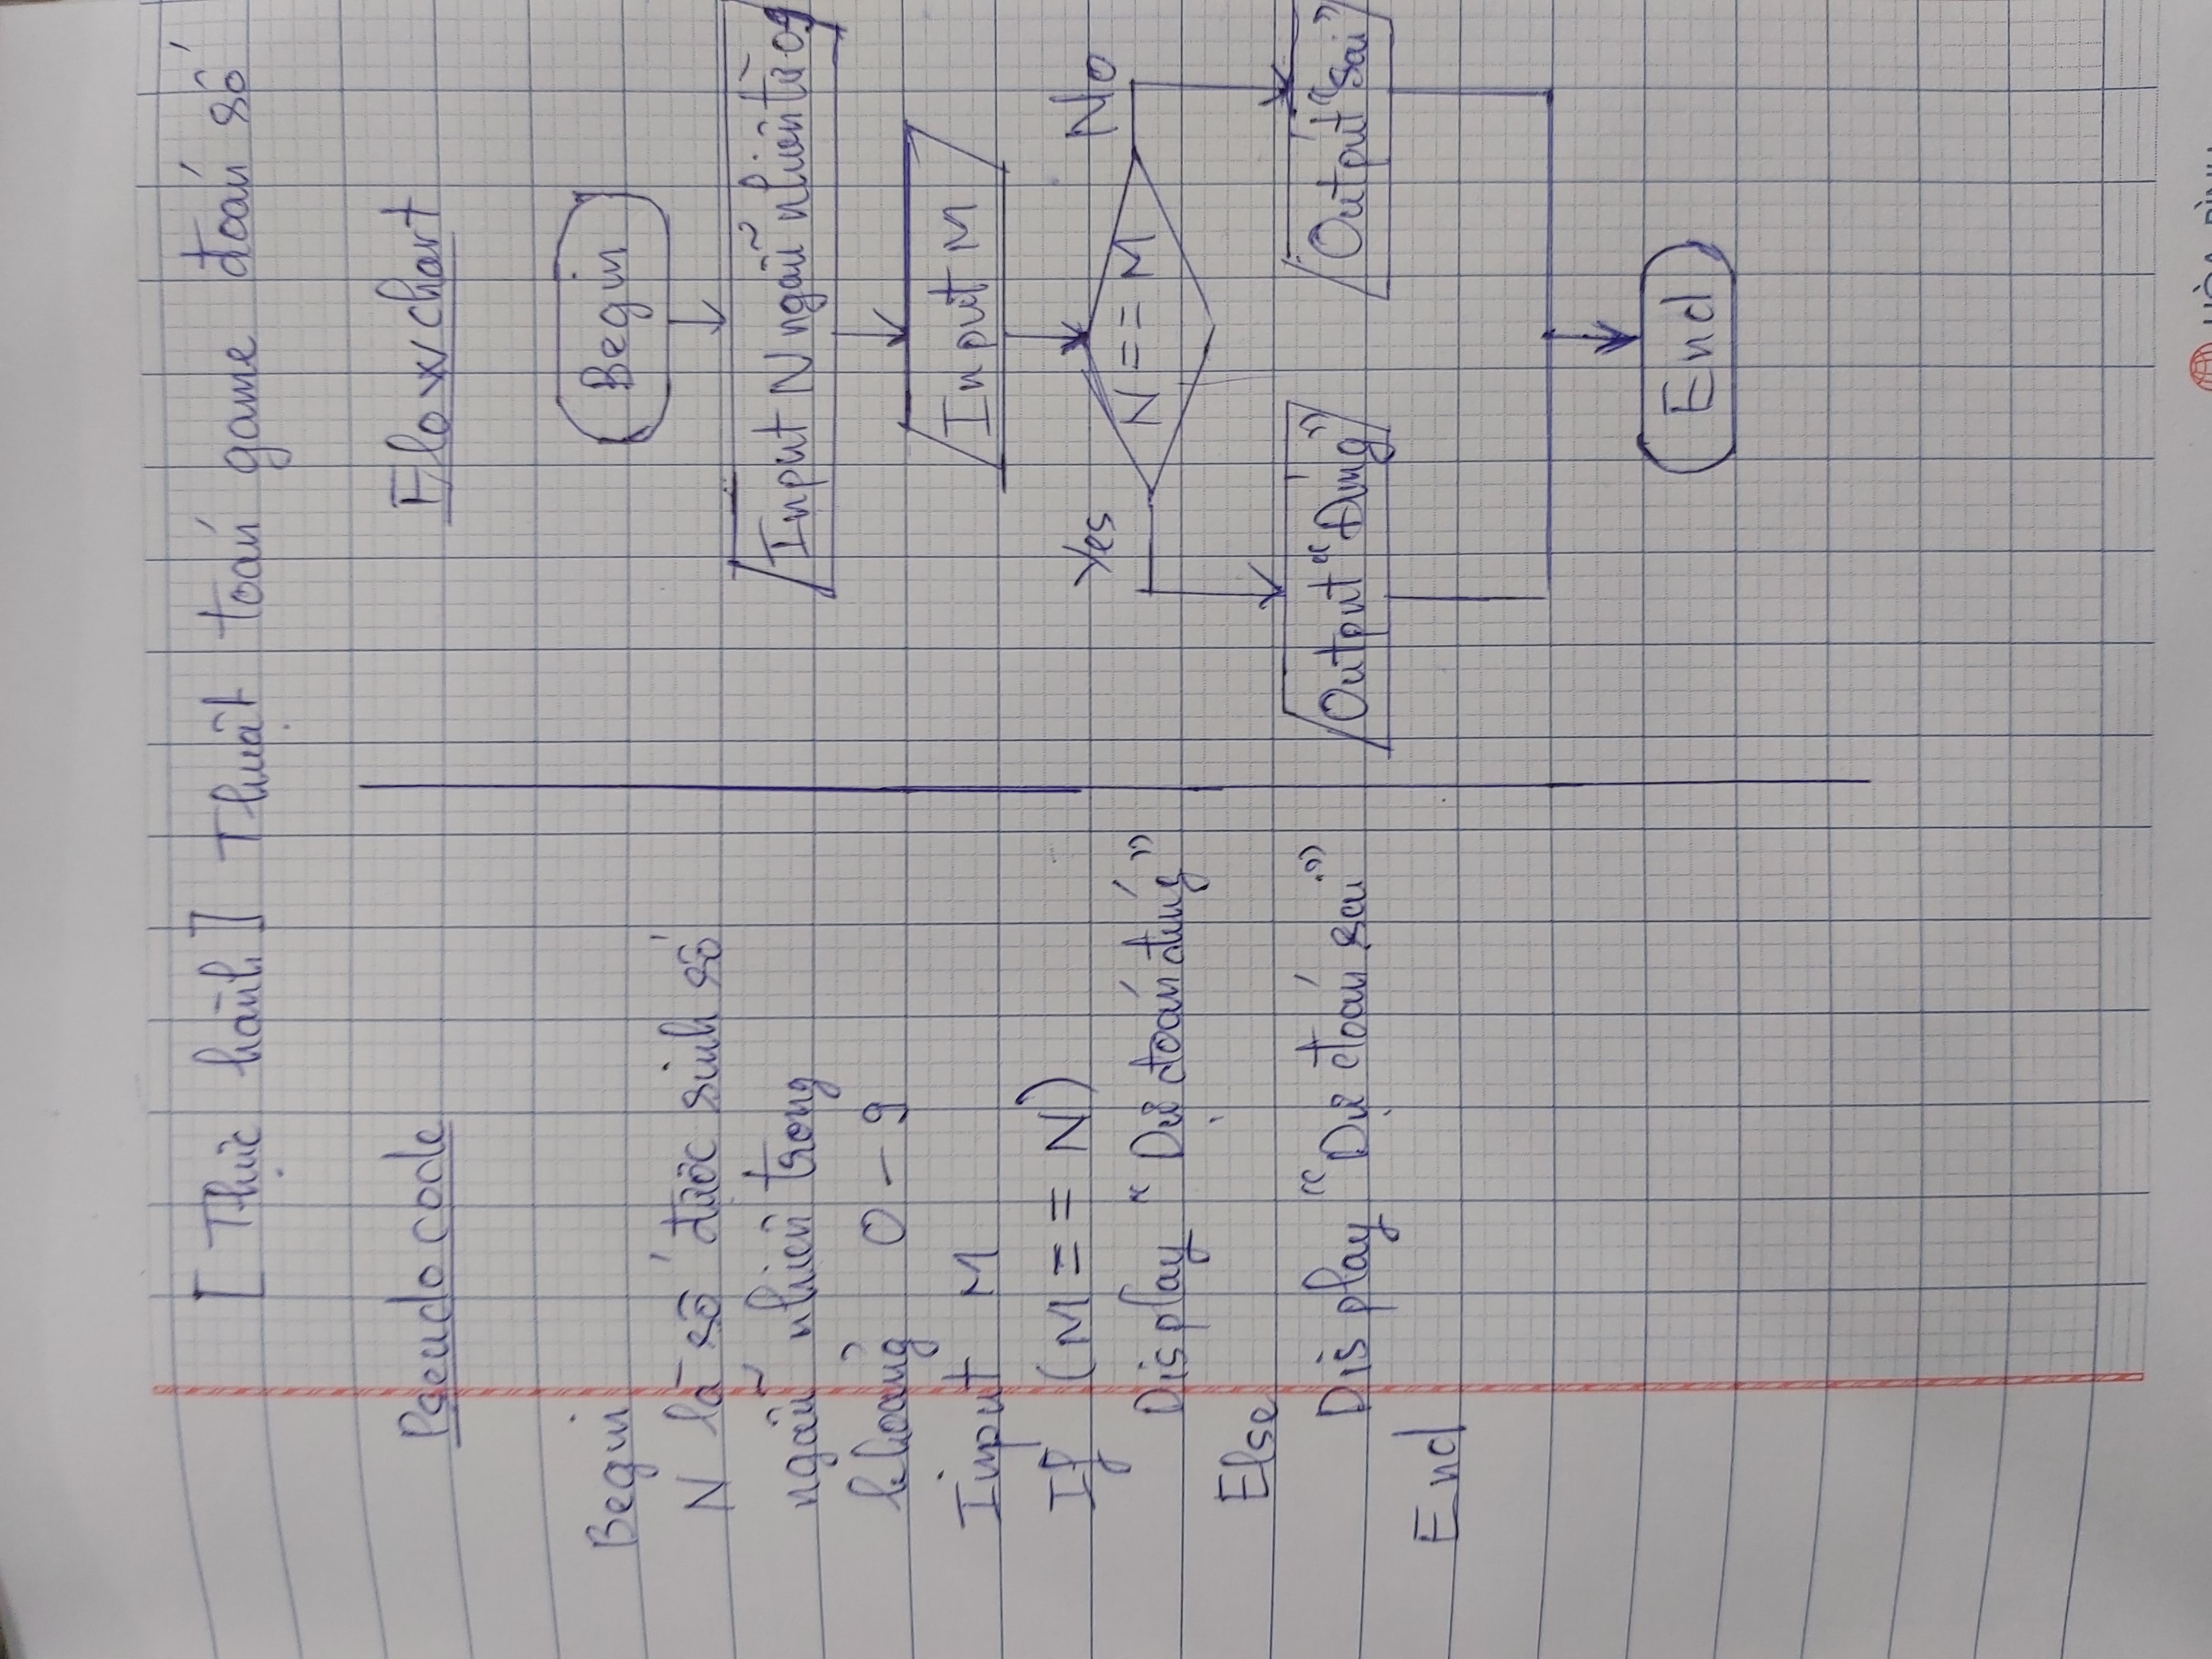 [Thực hành] Thuật toán game đoán số
Pseudo code
Begin
N là số được sinh số
ngẫu nhiên trong
khoảng 0 - 9
Input M
If (M == N)
Display "Dự đoán đúng"
Else
Display "Dự đoán sai"
End
Flowchart
Begin
Input N ngẫu nhiên từ 0 9
Input M
Yes
N == M
No
Output "Đúng"
Output "Sai"
End